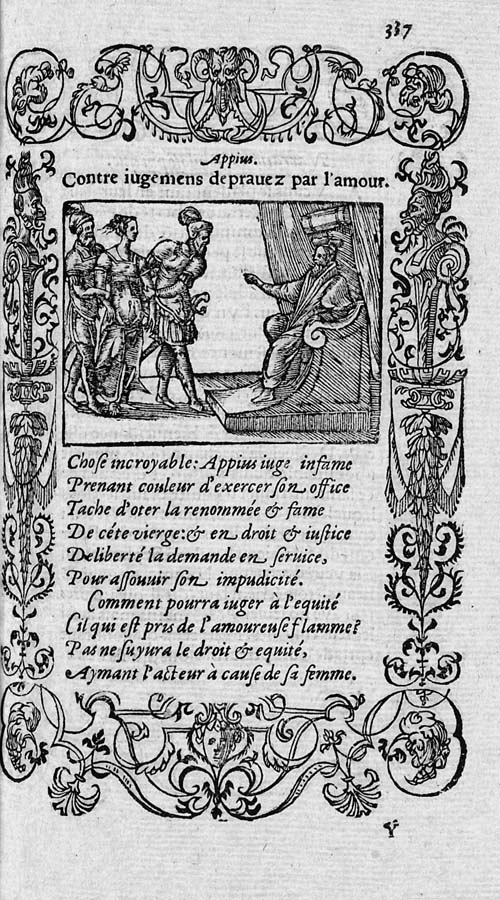 337
Appius.
Contre iugemens deprauez par l'amour.
Chose incroyable: Appius iuge infame
Prenant couleur d'exercer son office
Tache d'oter la renommée & fame
De céte vierge: & en droit & iustice
De liberté la demande en seruice,
Pour assouuir son impudicité.
Comment pourra iuger à l'equité
Cil qui est pris de l'amoureuse flamme?
Pas ne suyura le droit & equité,
Aymant l'acteur à cause de sa femme.
Y